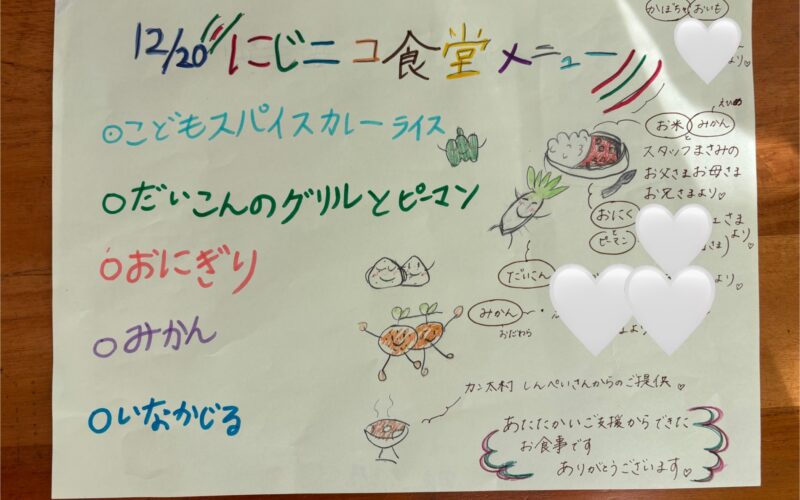 12/20 にじニコ食堂 メニュー
かぼちゃ おいも
より♡
◎こどもスパイスカレーライス
えひめ
お米と みかん
スタッフまさみの
お父さまお母さま
お兄さまより♡
○だいこんのグリルとピーマン
おにく さま
と より
ピーマン さま)
○おにぎり
だいこん より♡
○みかん
みかん〜・
おだわら より
カン太村 しんぺいさんからのご提供♡
○いなかじる
あたたかいご支援からできた
お食事です
ありがとうございます♡